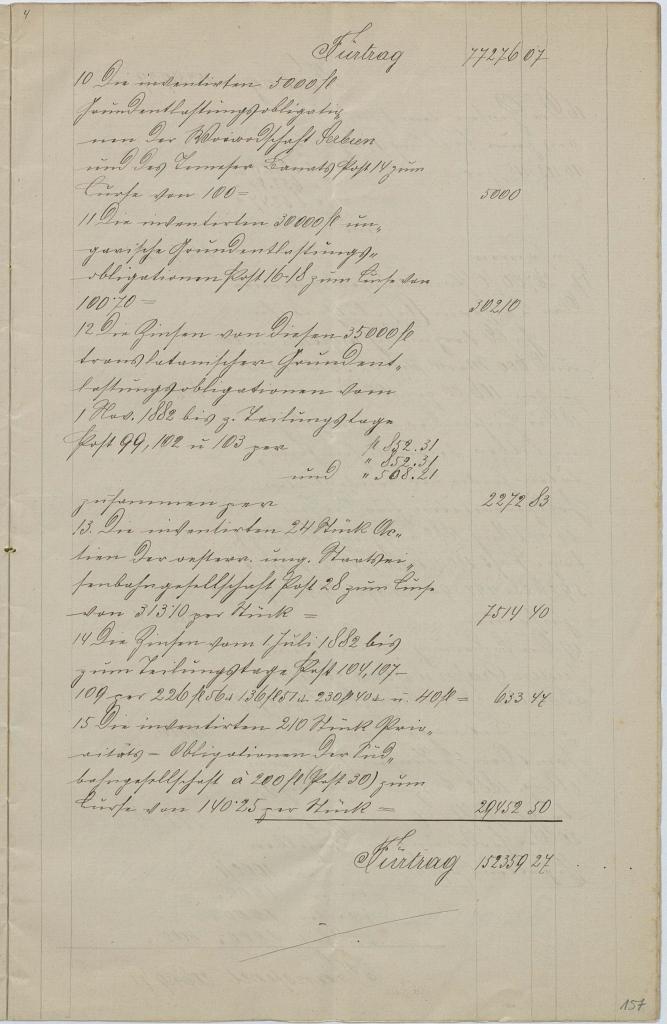 4
Fürtrag 77276 07
10 Die inventirten 5000 fl
Grundentlastungsobligatio,,
nen der Woiwodschaft Serbien
und des Temeser Banats Post 14 zum
Curse von 100 = 5000
11 Die inventirten 30000 fl un,,
garische Grundentlastungs,,
obligationen Post 16-18 zum Curse von
100·70 = 30210
12 Die Zinsen von diesen 35000 fl
transleitanischer Grundent,,
lastungsobligationen vom
1 Nov. 1882 bis z. Teilungstage
Post 99, 102 u 103 per fl 852.31
" 852.31
und " 568.21
zusammen per 2272 83
13. Die inventirten 24 Stück Ac,,
tien der oesterr. ung. Staatsei,,
senbahngesellschaft Post 28 zum Curse
von 313·10 per Stück = 7514 40
14 Die Zinsen vom 1 Juli 1882 bis
zum Teilungstage Post 104, 107-
109 per 226 fl 56 x 136 fl 51 x 230 fl 40 x u. 40 fl = 633 47
15 Die inventirten 210 Stück Prio,,
ritäts - Obligationen der Süd,,
bahngesellschaft à 200 fl (Post 30) zum
Curse von 140·25 per Stück = 29452 50
Fürtrag 152359 27
157